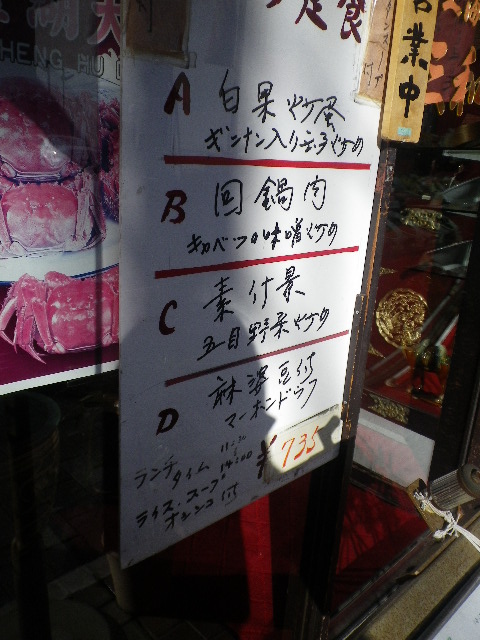 定食
営業中
HENG HU
A 白果炒蛋
ギンナン入り玉子炒め
B 回鍋肉
キャベツの味噌炒め
C 素什景
五目野菜炒め
D 麻婆豆付
マーボードウフ
ランチタイム
14:00
¥735
ライス・スープ
オシンコ付